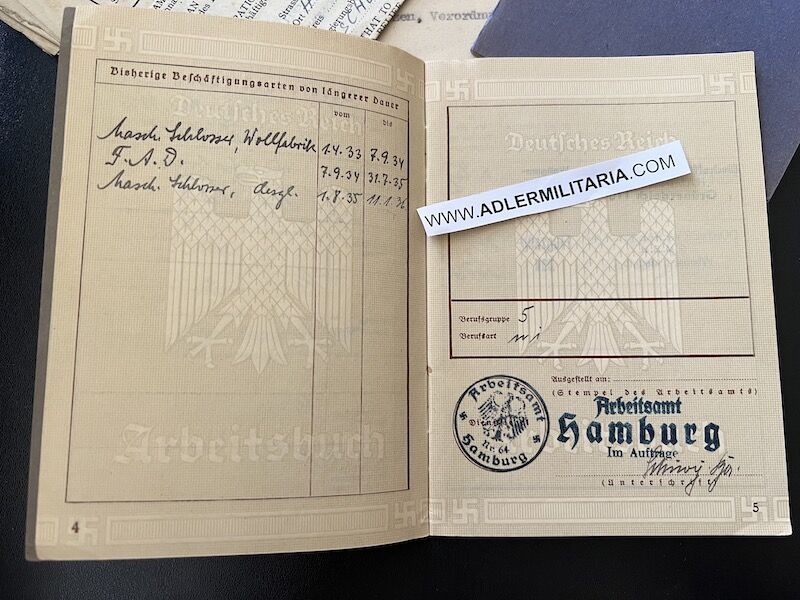 Bisherige Beschäftigungsarten von längerer Dauer
vom bis
Masch. Schlosser, Wollfabrik 1.4.33 7.9.34
F.A.D. 7.9.34 31.7.35
Masch. Schlosser, desgl. 1.8.35 11.1.36
Deutsches Reich
Arbeitsbuch
4
Deutsches Reich
WWW.ADLERMILITARIA.COM
Berufsgruppe 5
Berufsart
Ausgestellt am:
(Stempel des Arbeitsamts)
Arbeitsamt
Hamburg
Im Auftrage
(Unterschrift)
Arbeitsamt
Nr. 64
Hamburg
5